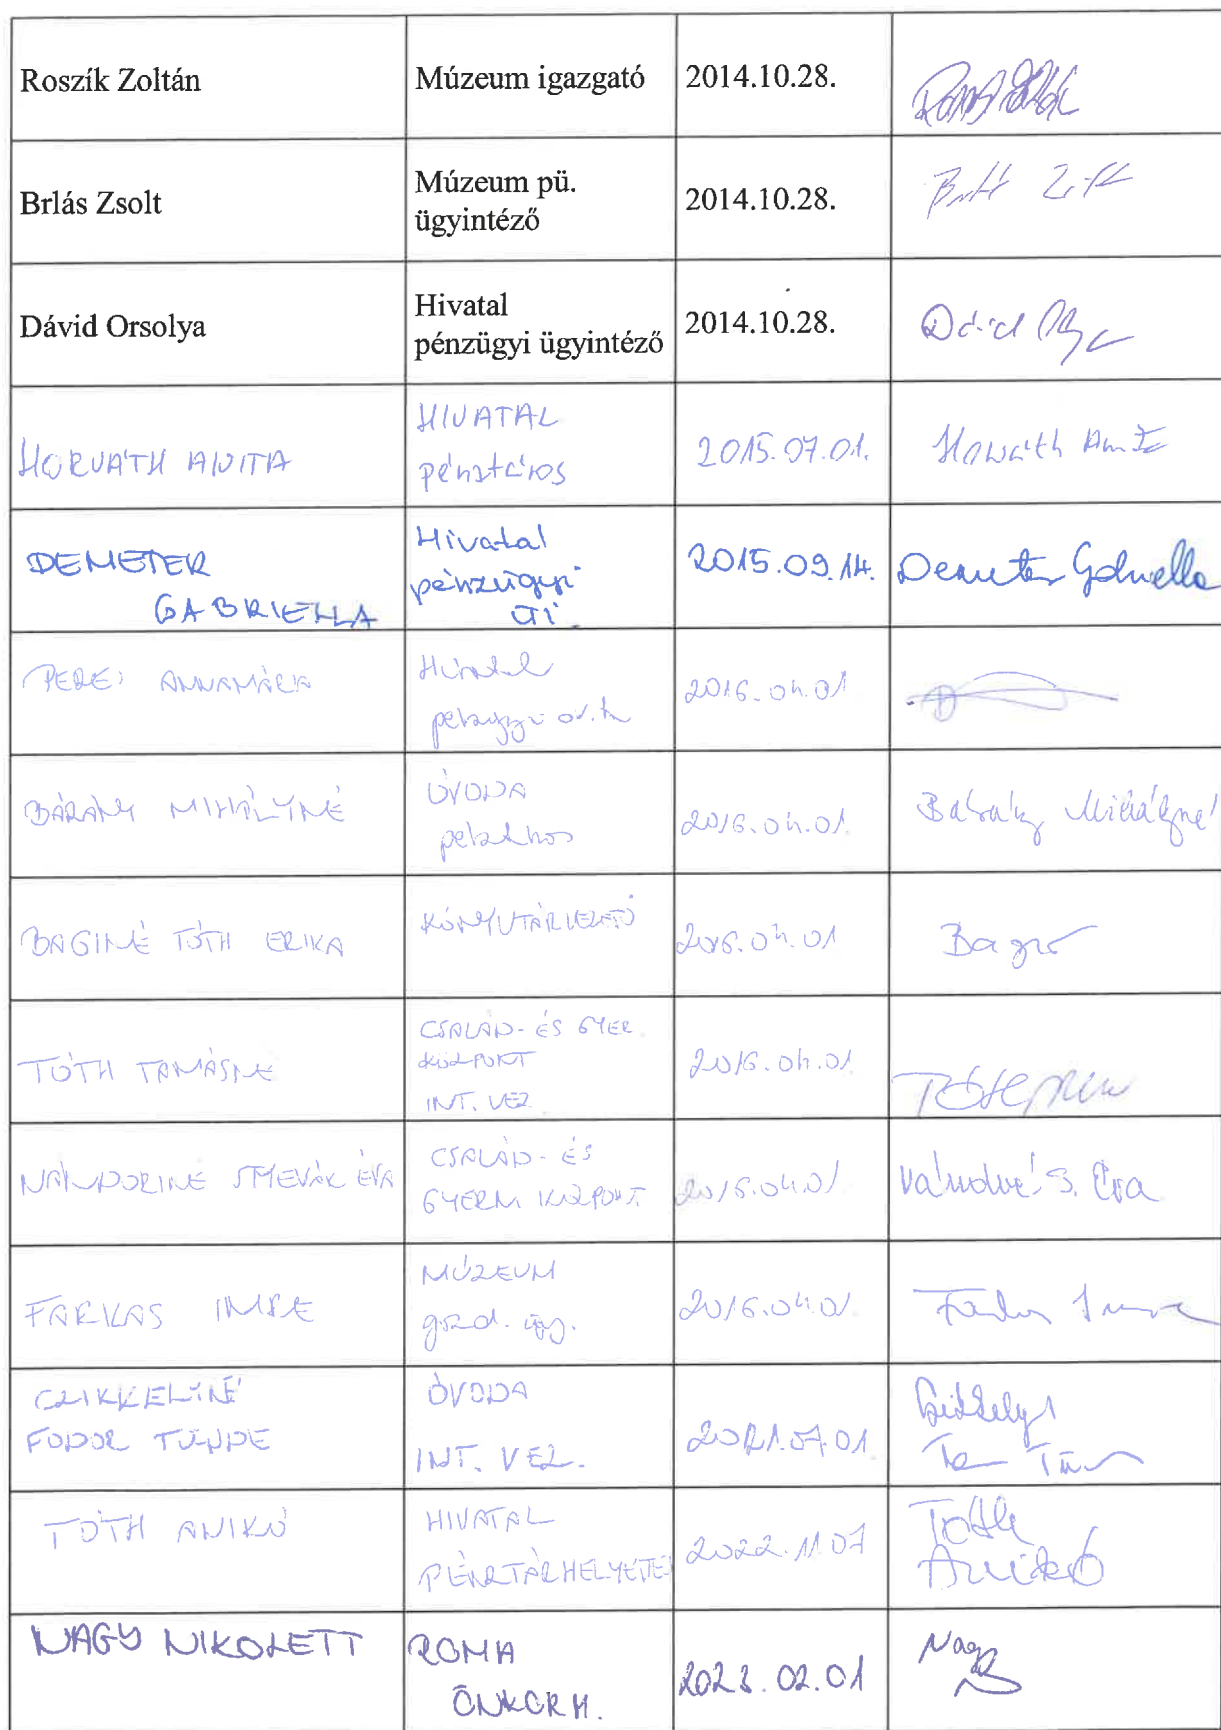 Roszík Zoltán
Múzeum igazgató
2014.10.28.
Brlás Zsolt
Múzeum pü.
ügyintéző
2014.10.28.
Dávid Orsolya
Hivatal
pénzügyi ügyintéző
2014.10.28.
Dávid
HORVÁTH ANITA
HIVATAL
pénztáros
2015.07.01.
Horváth Anita
DEMETER
GABRIELLA
Hivatal
pénzügyi
üi.
2015.09.14.
Demeter Gabriella
ANNAMÁRIA
Hivatal
2016.04.01
BÁRÁNY MIHÁLYNÉ
ÓVODA
2016.04.01.
Bárány Mihályné
BAGINÉ TÓTH ERIKA
KÖNYVTÁRVEZETŐ
2016.04.01
Baginé
TÓTH TAMÁSNÉ
CSALÁD- ÉS GYER.
KÖZPONT
INT. VEZ
2016.04.01.
NÁNDORINÉ SMEVÁK ÉVA
CSALÁD- ÉS
GYERM KÖZPONT
2016.04.01.
S. Éva
FARKAS IMRE
MÚZEUM
gazd. üg.
2016.04.01.
Farkas Imre
CZIKKELYNÉ
FODOR TÜNDE
ÓVODA
INT. VEZ.
2021.07.01.
TÓTH ANIKÓ
HIVATAL
PÉNZTÁRHELYETTES
2022.11.07
Tóth
Anikó
NAGY NIKOLETT
ROMA
ÖNKORM.
2023.02.01
Nagy